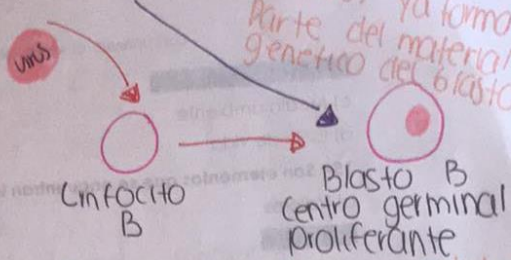 ya formo
Parte del material
genético del blasto
virus
Linfocito
B
Blasto B
Centro germinal
proliferante